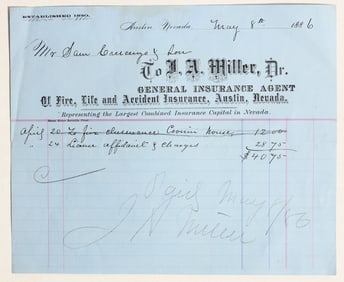 ESTABLISHED 1880.
Austin, Nevada, May 8th 1886
Mr. Sam & Son
To J. A. Miller, Dr.
GENERAL INSURANCE AGENT
Of Fire, Life and Accident Insurance, Austin, Nevada.
Representing the Largest Combined Insurance Capital in Nevada.
April 20 To fire Insurance house 12 00
" 24 License affidavit & Charges 28 75
$40 75
May 8/86
J A Miller